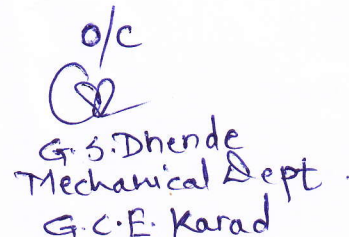 O/C
G.S.Dhende
Mechanical Dept.
G.C.E. Karad